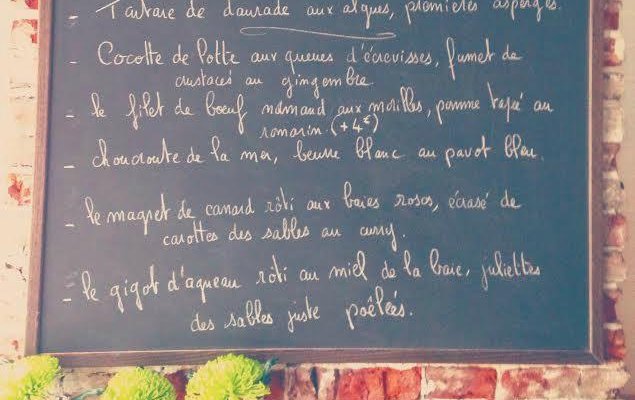 - Tartare de daurade aux algues, premières asperges.
- Cocotte de lotte aux queues d'écrevisses, fumet de
crustacés au gingembre.
- le filet de bœuf normand aux morilles, pomme tapée au
romarin (+4€)
- choucroute de la mer, beurre blanc au pavot bleu.
- le magret de canard rôti aux baies roses, écrasé de
carottes des sables au curry.
- le gigot d'agneau rôti au miel de la baie, juliettes
des sables juste poêlées.